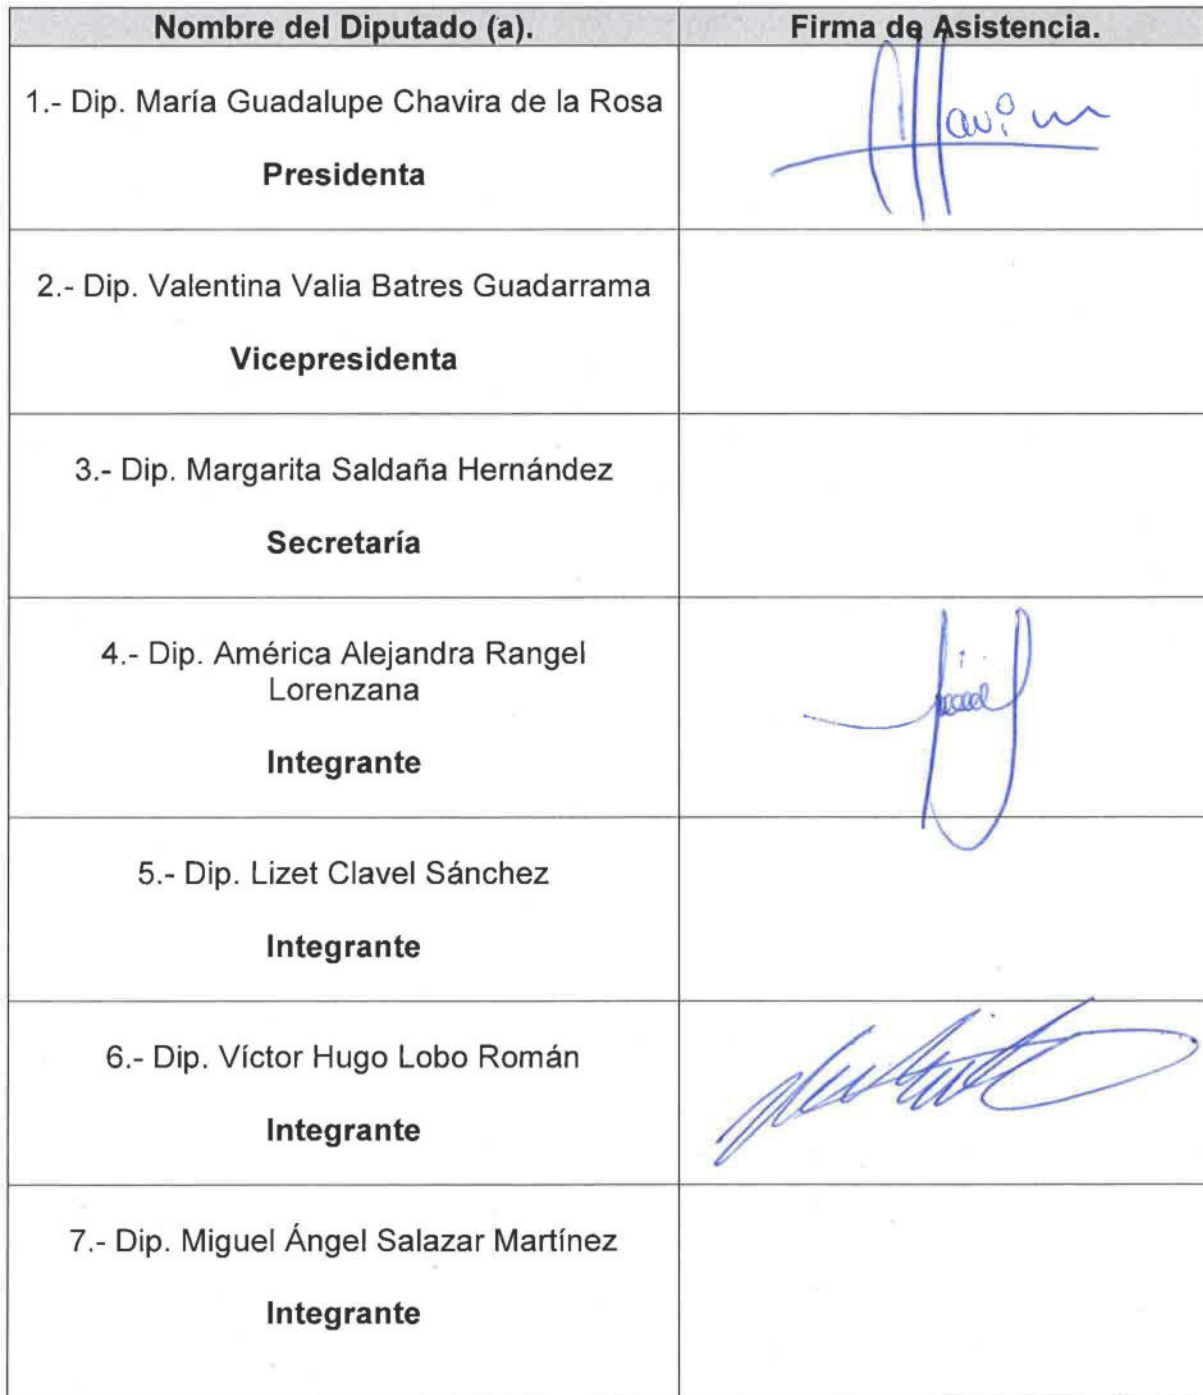 Nombre del Diputado (a).
Firma de Asistencia.
1.- Dip. María Guadalupe Chavira de la Rosa
Presidenta
2.- Dip. Valentina Valia Batres Guadarrama
Vicepresidenta
3.- Dip. Margarita Saldaña Hernández
Secretaría
4.- Dip. América Alejandra Rangel
Lorenzana
Integrante
5.- Dip. Lizet Clavel Sánchez
Integrante
6.- Dip. Víctor Hugo Lobo Román
Integrante
7.- Dip. Miguel Ángel Salazar Martínez
Integrante